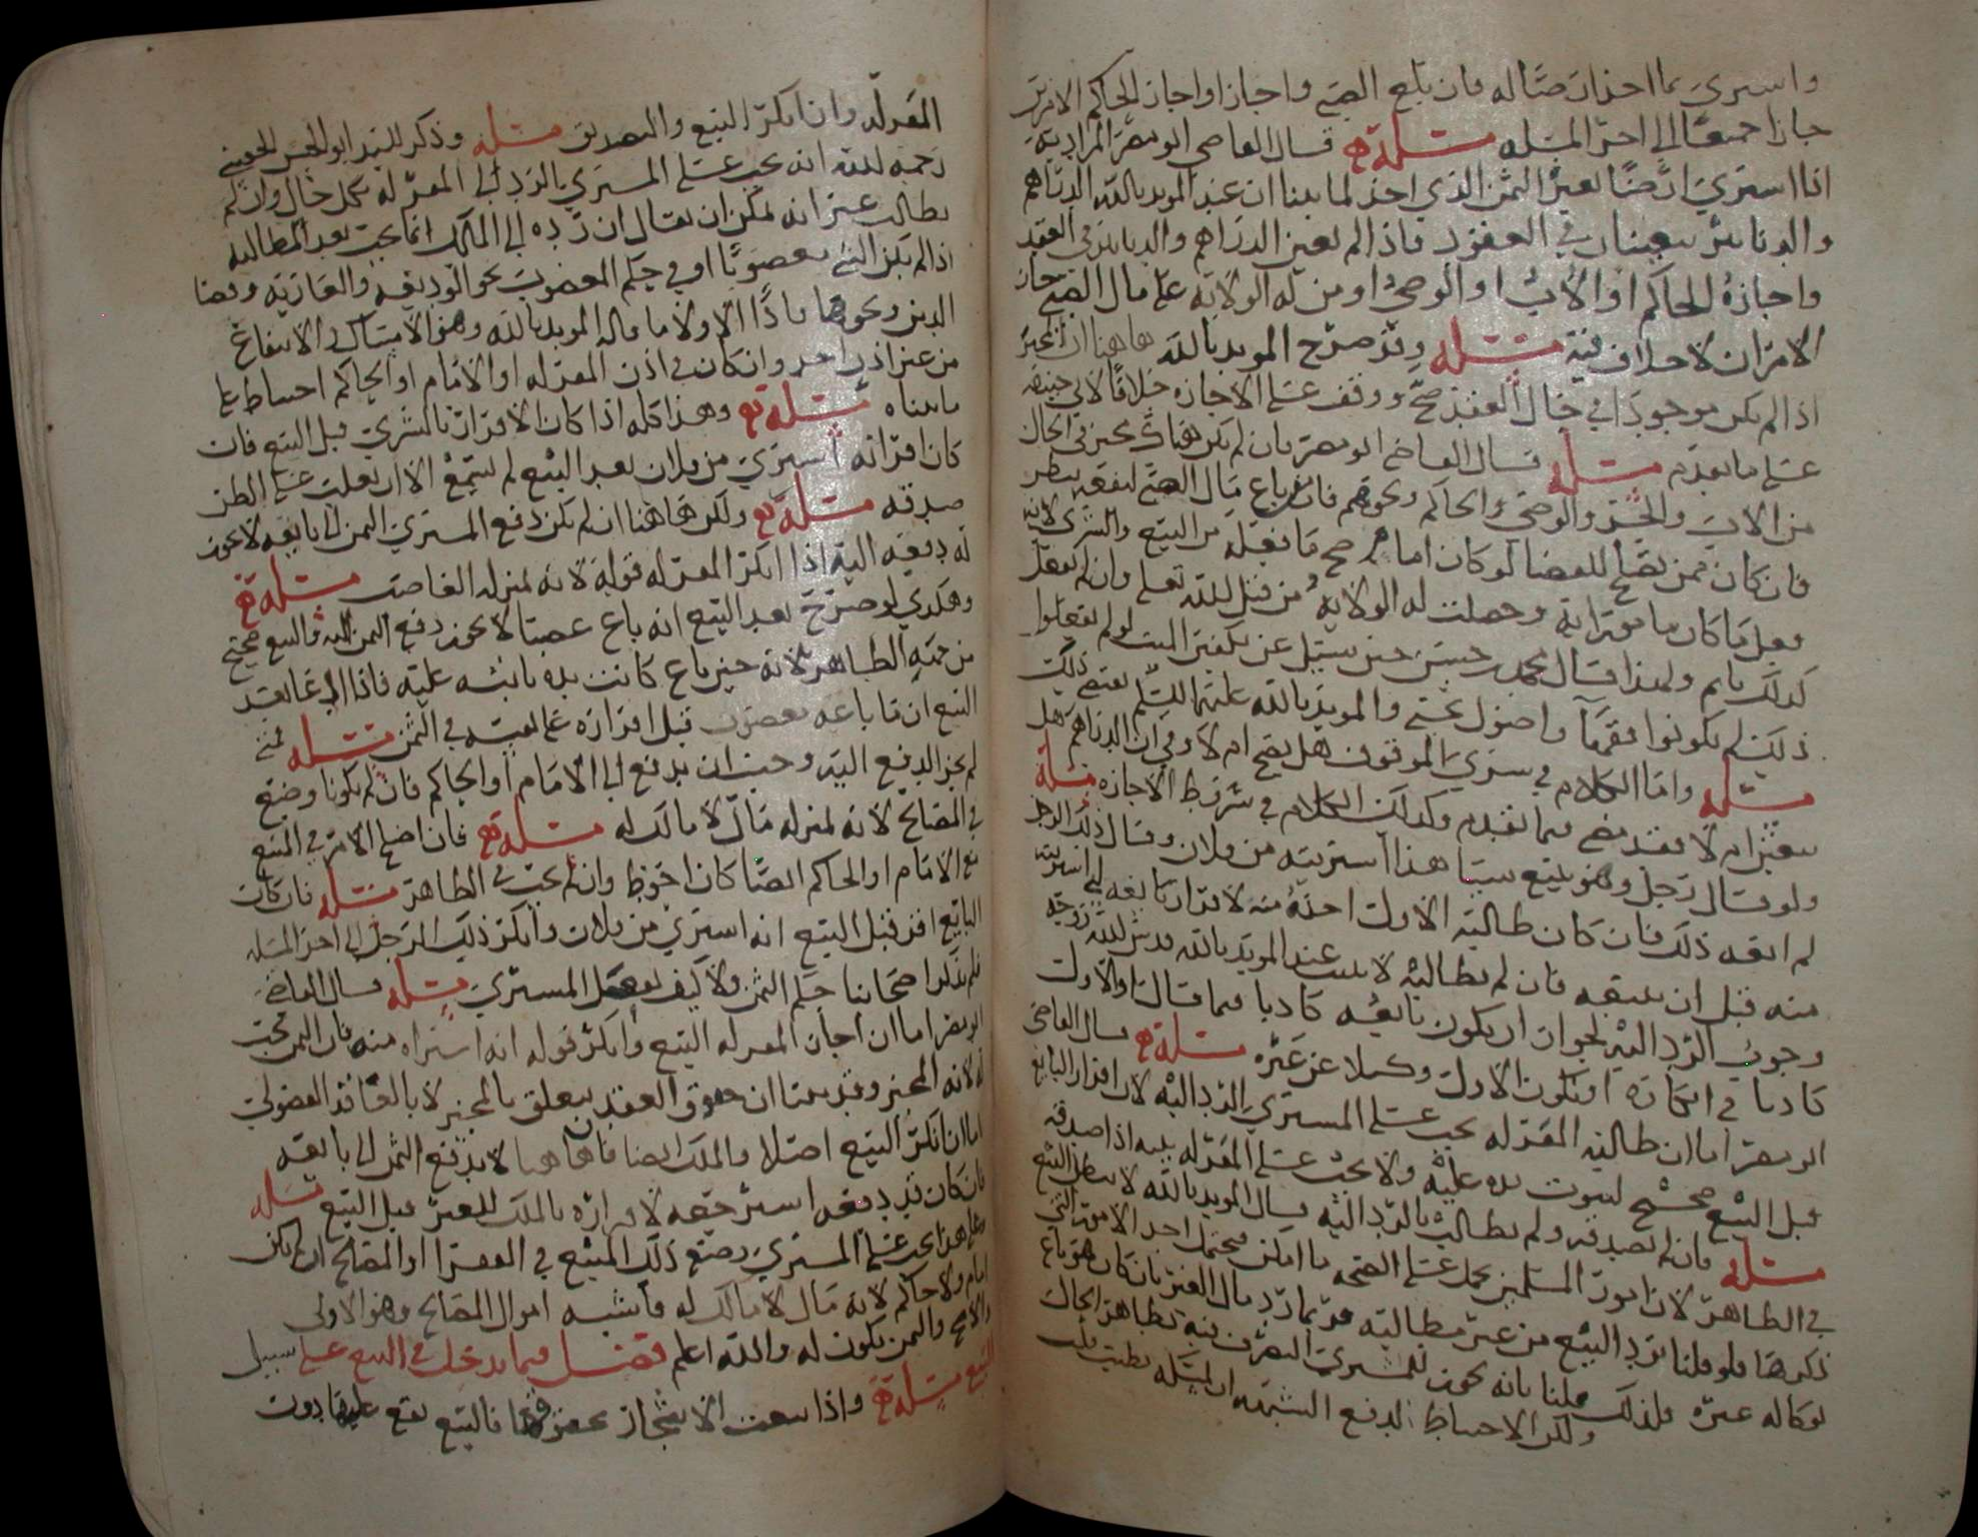 واشترى بما اخذ ارضا له فان بلغ الصبي واجاز او اجاز الحاكم الامرين
جازا جميعا الى اخر المسله مسئلة قال القاضي ابو مضر المراد به
اذا اشترى ارضا بعين الثمن الذي اخذ لما بينا ان عند المويد بالله الدراهم
والدنانير يتعينان في العقود فاذا لم تعين الدراهم والدنانير في العقد
واجازه الحاكم او الاب او الوصي او من له الولاية على مال الصبي جاز
الامران لا خلاف فيه مسئلة وقد صرح المويد بالله هاهنا ان المجيز
اذا لم يكن موجودا في حال العقد صح ووقف على الاجازه خلافا لابي حنيفه
على ما تقدم مسئلة قال القاضي ابو مضر فان لم يكن هناك مجيز في الحال
من الاب والجد والوصي والحاكم ونحوهم فان باع مال الصبي لنفقته ينظر
فان كان ممن يصلح للقضا لو كان امام صح ما فعله من البيع والشرى لانه
فعل ما كان مامورا به وحصلت له الولاية من قبل الله تعالى وان لم يفعل
كذلك ياثم ولهذا قال محمد بن حسن حين سئل عن تكفين الميت لو لم يفعلوا
ذلك لم يكونوا فقها واصول يحيى والمويد بالله عليهما السلم يقتضي ذلك
مسئلة واما الكلام في شرى الموقوف هل يصح ام لا وفي ان الدراهم هل
تتعين ام لا فقد مضى فيما تقدم وكذلك الكلام في شروط الاجازه مسئلة
ولو قال رجل وهو يبيع شيئا هذا اشتريته من فلان وقال ذلك الرجل
لم ابعه ذلك فان كان طالبه الاول اخذه منه لاقرار بايعه اني اشتريته
منه قبل ان يبيعه فان لم يطالبه لا يجب عند المويد بالله قدس الله روحه
وجوب الرد اليه لجواز ان يكون بايعه كاذبا فيما قال او الاول
كاذبا في انكاره او يكون الاول وكيلا عن غيره مسئلة قال القاضي
ابو مضر اما ان طالبه المقر له يجب على المشتري الرد اليه لان اقرار البايع
قبل البيع صحيح لثبوت يده عليه ولا يجب على المقر له بينه اذا صدقه
مسئلة فان لم يصدقه ولم يطالبه بالرد اليه قال المويد بالله لا يبطل البيع
في الظاهر لان امور المسلمين تحمل على الصحه ما امكن فيحتمل احد الامور التي
ذكرها فلو قلنا برد البيع من غير مطالبته فربما رد مال الغير بان كان هو باع
بوكالة غيره فلذلك قلنا بانه يجوز للمشتري التصرف فيه بظاهر الحال
ولكن الاحتياط لدفع الشبهه ان يسئله تطيب قلب
المقر له وان انكر البيع والتصديق مسئلة وذكر السيد ابو الحسن الحسيني
رحمه الله انه يجب على المشتري بالرد الى المقر له بكل حال وان لم
يطالب غير انه يمكن ان يقال ان رده الى المالك انما يجب بعد المطالبه
اذا لم يكن الشي مغصوبا او في حكم المغصوب نحو الوديعه والعاريه وقضا
الدين ونحوها فاذا الاولى ما قاله المويد بالله وهو الامساك الى الانتفاع
من غير اذن احد وان كان في اذن المقر له او الامام او الحاكم احتياط على
ما بيناه مسئلة وهذا كله اذا كان الاقرار بالشرى قبل البيع فان
كان اقر انه اشترى من فلان بعد البيع لم يستمع الا ان يغلب على الظن
صدقه مسئلة ولكن هاهنا ان لم يكن دفع المشتري الثمن الى بايعه لا يجوز
له دفعه اليه اذا انكر المقر له قوله لانه بمنزلة الغاصب مسئلة
وهكذى لو صرح بعد البيع انه باع غصبا لا يجوز دفع الثمن اليه والبيع صحيح
من جهة الظاهر لانه حين باع كانت يده ثابته عليه فاذا ادعا بعد
البيع ان ما باعه مغصوب قبل اقراره على نفسه في الثمن مسئلة فمتى
لم يجز الدفع اليه وجب ان يدفع الى الامام او الحاكم فان لم يكونا وضع
في المصالح لانه بمنزلة مال لا مالك له مسئلة فان اضاع الامر في البيع
مع الامام او الحاكم ايضا كان احوط وان لم يجب في الظاهر مسئلة فان كان
البايع اقر قبل البيع انه اشترى من فلان وانكر ذلك الرجل الى اخر المسله
فلم يذكر اصحابنا حكم الثمن ولا كيف يعمل المشتري مسئلة قال القاضي
ابو مضر اما ان اجاز المقر له البيع وانكر قوله انه اشتراه منه فان الثمن يجب
له لانه المجيز وقد بينا ان حقوق العقد يتعلق بالمجيز لا بالعاقد الفضولي
اما ان انكر البيع اصلا والملك ايضا فهاهنا لا يدفع الثمن الى بايعه
فان كان قد دفعه استرجعه لاقراره بالملك للغير قبل البيع مسئلة
وعلى هذا يجب على المشتري وضع ذلك المبيع في الفقرا او المصالح ان لم يكن
امام ولا حاكم لانه مال لا مالك له فاشبه اموال المصالح وهو الاولى
والاصح والثمن يكون له والله اعلم فصل فيما يدخل في البيع على سبيل
التبع مسئلة واذا بيعت الاشجار بحقوقها فالبيع يقع عليها دون